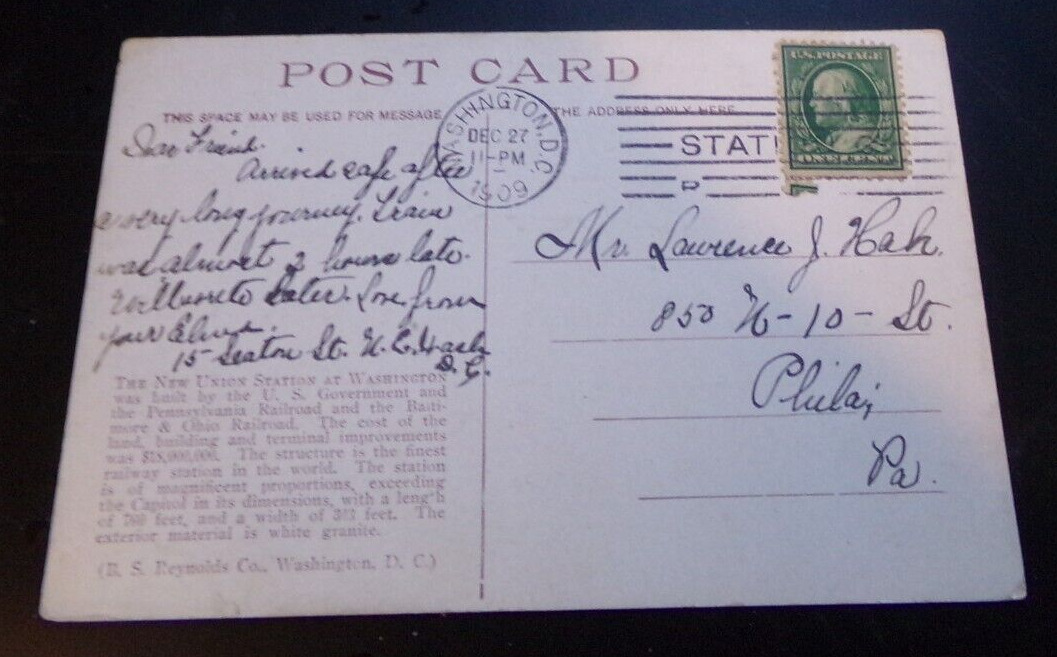 POST CARD
THIS SPACE MAY BE USED FOR MESSAGE
THE ADDRESS ONLY HERE
WASHINGTON, D.C.
DEC 27
11-PM
1909
STATI
U.S. POSTAGE
ONE CENT
Dear Friend.
Arrived safe after
a very long journey. Train
was almost 2 hours late.
Will write later. Love from
your
15 Seaton St. N.E. Wash
D.C.
Mr. Lawrence J. Hah.
850 N-10-St.
Phila,
Pa.
THE NEW UNION STATION AT WASHINGTON
was built by the U. S. Government and
the Pennsylvania Railroad and the Balti-
more & Ohio Railroad. The cost of the
land, building and terminal improvements
was $18,000,000. The structure is the finest
railway station in the world. The station
is of magnificent proportions, exceeding
the Capitol in its dimensions, with a length
of 760 feet, and a width of 343 feet. The
exterior material is white granite.
(B. S. Reynolds Co., Washington, D. C.)